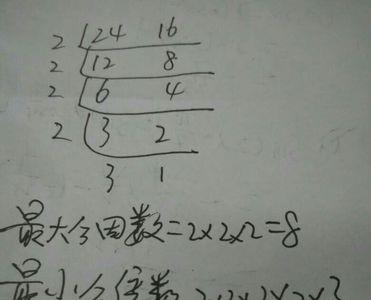 2 24 16
2 12 8
2 6 4
2 3 2
3 1
最大公因数=2×2×2=8
最小公倍数 2×2×2×2×3